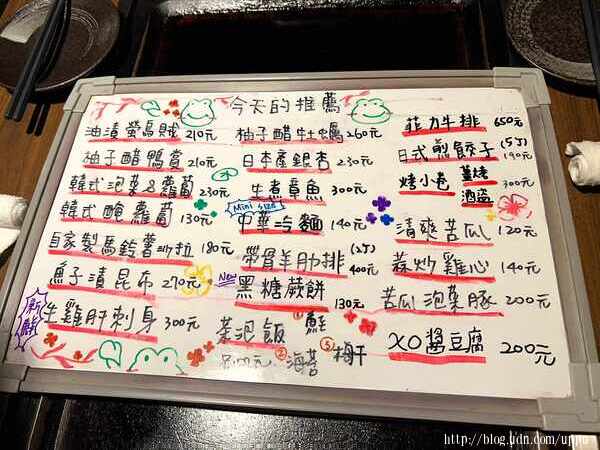 今天的推薦
油漬螢烏賊 210元
柚子醋鴨賞 210元
韓式泡菜&蘿蔔 230元
韓式醃蘿蔔 130元
自家製馬鈴薯沙拉 180元
魚子漬昆布 270元
新鮮
生雞肝刺身 300元
柚子醋牡蠣 260元
日本產銀杏 230元
牛煮章魚 300元
Mini size
中華冷麵 140元
帶骨羊肋排 (2丁) 400元
New
黑糖蕨餅 130元
茶泡飯 ①鮭
②海苔 ③梅干
菲力牛排 650元
日式煎餃子 (5丁) 190元
烤小卷 薑烤 酒盜 300元
清爽苦瓜 120元
蒜炒雞心 140元
苦瓜泡菜豚 200元
XO醬豆腐 200元
http://blog.udn.com/uppus